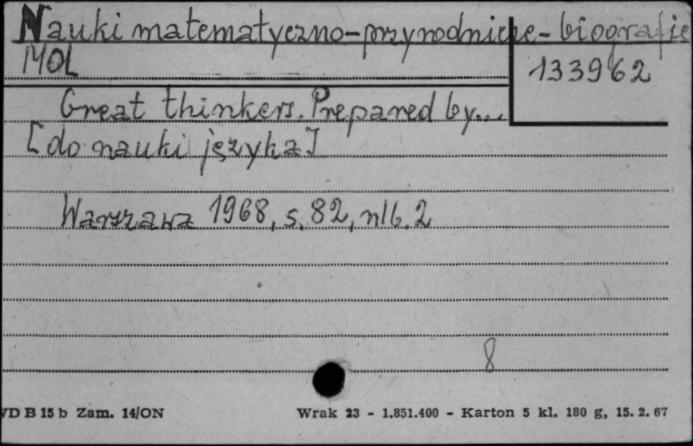 Nauki matematyczno-przyrodnicze-biografie
MOL
133962
Great thinkers. Prepared by...
[do nauki języka]
Warszawa 1968, s. 82, nlb. 2
8
WD B 15 b Zam. 14/ON
Wrak 23 - 1.851.400 - Karton 5 kl. 180 g, 15. 2. 67